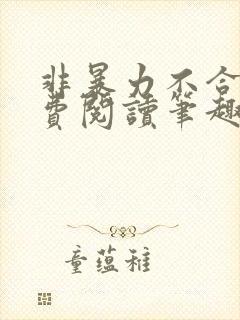 非暴力不合
費閱讀筆趣
童蕴稚